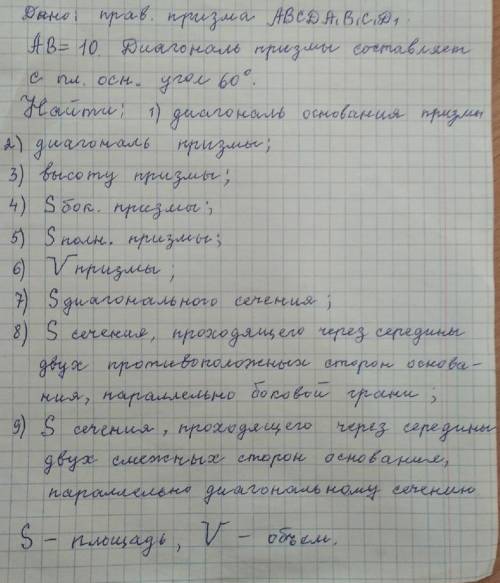 Дано: прав. призма ABCDA₁B₁C₁D₁
AB = 10. Диагональ призмы составляет
с пл. осн. угол 60°.
Найти: 1) диагональ основания призмы
2) диагональ призмы;
3) высоту призмы;
4) S бок. призмы;
5) S полн. призмы;
6) V призмы;
7) S диагонального сечения;
8) S сечения, проходящего через середины
двух противоположных сторон основа-
ния, параллельно боковой грани;
9) S сечения, проходящего через середины
двух смежных сторон основания,
параллельно диагональному сечению
S – площадь, V – объем.